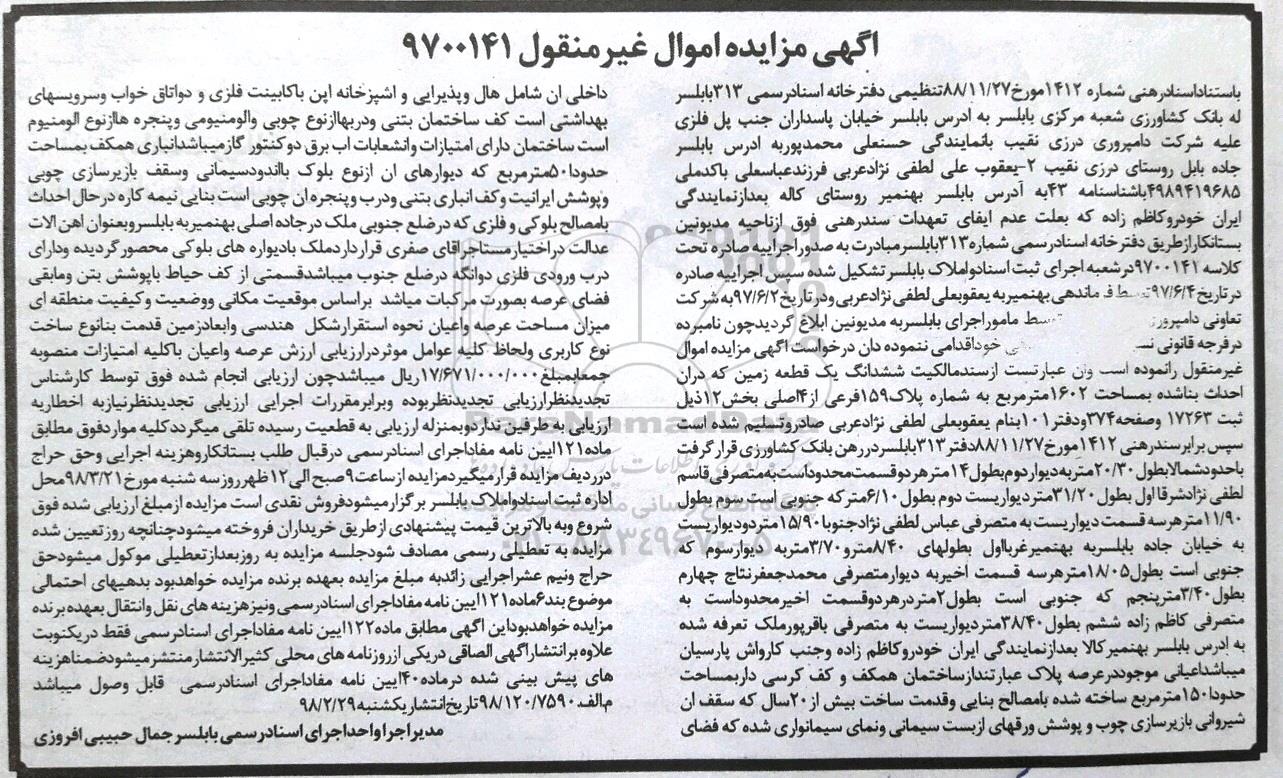 آگهی مزایده اموال غیرمنقول ۹۷۰۰۱۴۱
باستناداسنادرهنی شماره ۱۴۱۲مورخ۸۸/۱۱/۲۷تنظیمی دفترخانه اسنادرسمی ۳۱۳بابلسر
له بانک کشاورزی شعبه مرکزی بابلسر به ادرس بابلسر خیابان پاسداران جنب پل فلزی
علیه شرکت دامپروری درزی نقیب بانمایندگی حسنعلی محمدپوربه ادرس بابلسر
جاده بابل روستای درزی نقیب ۲-یعقوب علی لطفی نژادعربی فرزندعباسعلی باکدملی
۴۹۸۹۴۱۹۶۸۵باشناسنامه ۴۳به آدرس بابلسر بهنمیر روستای کاله بعدازنمایندگی
ایران خودروکاظم زاده که بعلت عدم ایفای تعهدات سندرهنی فوق ازناحیه مدیونین
بستانکارازطریق دفترخانه اسنادرسمی شماره۳۱۳بابلسرمبادرت به صدوراجراییه صادره تحت
کلاسه ۹۷۰۰۱۴۱درشعبه اجرای ثبت اسنادواملاک بابلسر تشکیل شده سپس اجراییه صادره
درتاریخ۹۷/۶/۴توسط فرماندهی بهنمیربه یعقوبعلی لطفی نژادعربی ودرتاریخ۹۷/۶/۲به شرکت
تعاونی دامپرورز توسط ماموراجرای بابلسربه مدیونین ابلاغ گردیدچون نامبرده
درفرجه قانونی خوداقدامی ننموده دان درخواست اگهی مزایده اموال
غیرمنقول رانموده است وان عبارتست ازسندمالکیت ششدانگ یک قطعه زمین که دران
احداث بناشده بمساحت ۱۶۰۲مترمربع به شماره پلاک۱۵۹فرعی از۴اصلی بخش۱۲ذیل
ثبت ۱۷۲۶۳ وصفحه۳۷۴ودفتر۱۰۱بنام یعقوبعلی لطفی نژادعربی صادروتسلیم شده است
سپس برابرسندرهنی ۱۴۱۲مورخ۸۸/۱۱/۲۷دفتر۳۱۳بابلسردررهن بانک کشاورزی قرارگرفت
باحدودشمالابطول۲۰/۳۰متربه دیواردوم بطول۱۴مترهردوقسمت محدوداست به متصرفی قاسم
لطفی نژادشرقا اول بطول۳۱/۲۰متردیواریست دوم بطول۶/۱۰مترکه جنوبی است سوم بطول
۱۱/۹۰مترهرسه قسمت دیواریست به متصرفی عباس لطفی نژادجنوبا۱۵/۹۰متردودیواریست
به خیابان جاده بابلسربه بهنمیرغربااول بطولهای ۸/۴۰مترو۳/۷۰متربه دیوارسوم که
جنوبی است بطول۱۸/۰۵مترهرسه قسمت اخیربه دیوارمتصرفی محمدجعفرنتاج چهارم
بطول۳/۴۰مترپنجم که جنوبی است بطول۲متردرهردوقسمت اخیرمحدوداست به
متصرفی کاظم زاده ششم بطول۳۸/۴۰متردیواریست به متصرفی باقرپورملک تعرفه شده
به ادرس بابلسر بهنمیرکالا بعدازنمایندگی ایران خودروکاظم زاده وجنب کارواش پارسیان
میباشداعیانی موجوددرعرصه پلاک عبارتندازساختمان همکف و کف کرسی داربمساحت
حدودا۱۵۰مترمربع ساخته شده بامصالح بنایی وقدمت ساخت بیش از۲۰سال که سقف ان
شیروانی بازیرسازی چوب و پوشش ورقهای ازبست سیمانی ونمای سیمانواری شده که فضای
داخلی ان شامل هال وپذیرایی و اشپزخانه اپن باکابینت فلزی و دواتاق خواب وسرویسهای
بهداشتی است کف ساختمان بتنی ودربهاازنوع چوبی والومنیومی وپنجره هاازنوع الومنیوم
است ساختمان دارای امتیازات وانشعابات اب برق دوکنتور گازمیباشدانباری همکف بمساحت
حدودا۵۰مترمربع که دیوارهای ان ازنوع بلوک بااندودسیمانی وسقف بازیرسازی چوبی
وپوشش ایرانیت وکف انباری بتنی ودرب وپنجره ان چوبی است بنایی نیمه کاره درحال احداث
بامصالح بلوکی و فلزی که درضلع جنوبی ملک درجاده اصلی بهنمیربه بابلسروبعنوان اهن الات
عدالت دراختیارمستاجراقای صفری قرارداردملک بادیواره های بلوکی محصورگردیده ودارای
درب ورودی فلزی دولنگه درضلع جنوب میباشدقسمتی از کف حیاط باپوشش بتن ومابقی
فضای عرصه بصورت مرکبات میاشد براساس موقعیت مکانی ووضعیت وکیفیت منطقه ای
میزان مساحت عرصه واعیان نحوه استقرارشکل هندسی وابعادزمین قدمت بنانوع ساخت
نوع کاربری ولحاظ کلیه عوامل موثردرارزیابی ارزش عرصه واعیان باکلیه امتیازات منصوبه
جمعابمبلغ۱۷/۶۷۱/۰۰۰/۰۰۰ریال میباشدچون ارزیابی انجام شده فوق توسط کارشناس
تجدیدنظرارزیابی تجدیدنظربوده وبرابرمقررات اجرایی ارزیابی تجدیدنظرنیازبه اخطاریه
ارزیابی به طرفین نداردوبمنزله ارزیابی به قطعیت رسیده تلقی میگرددکلیه مواردفوق مطابق
ماده۱۲۱ایین نامه مفاداجرای اسنادرسمی درقبال طلب بستانکاروهزینه اجرایی وحق حراج
دررددیف مزایده قرارمیگیردمزایده ازساعت۹صبح الی۱۲ظهرروزسه شنبه مورخ۹۸/۳/۲۱محل
اداره ثبت اسنادواملاک بابلسر برگزارمیشودفروش نقدی است مزایده ازمبلغ ارزیابی شده فوق
شروع وبه بالاترین قیمت پیشنهادی ازطریق خریداران فروخته میشودچنانچه روزتعیین شده
مزایده به تعطیلی رسمی مصادف شودجلسه مزایده به روزبعدازتعطیلی موکول میشودحق
حراج ونیم عشراجرایی زائدبه مبلغ مزایده بعهده برنده مزایده خواهدبود بدهیهای احتمالی
موضوع بند۶ماده۱۲۱ایین نامه مفاداجرای اسنادرسمی ونیزهزینه های نقل وانتقال بعهده برنده
مزایده خواهدبوداین اگهی مطابق ماده۱۲۲ایین نامه مفاداجرای اسنادرسمی فقط دریکنوبت
علاوه برانتشاراگهی الصاقی دریکی ازروزنامه های محلی کثیرالانتشارمنتشرمیشودضمناهزینه
های پیش بینی شده درماده۴۰ایین نامه مفاداجرای اسنادرسمی قابل وصول میباشد
م.الف ۹۸/۱۲۰/۷۵۹۰تاریخ انتشاریکشنبه ۹۸/۲/۲۹
مدیراجرا واحداجرای اسنادرسمی بابلسرجمال حبیبی افروزی